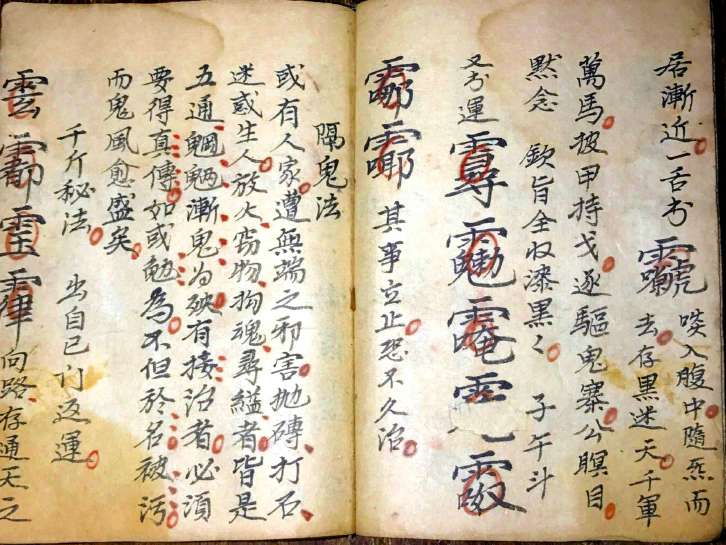 居漸近一舌书 啖入腹中隨炁而
去存黑迷天千軍
萬馬披甲持戈逐驅鬼寨公瞑目
默念 欽旨全收漆黑〻 子午斗
又书運
其事立止恐不久治
隔鬼法
或有人家遭無端之邪害抛磚打石
迷或生人放火窃物拘魂尋縊者皆是
五通魍魎漸鬼为殃有接治者必須
要得真傳如或勉為不但於名被污
而鬼風愈盛矣
千斤秘法 出自己门返運
向路存通天之